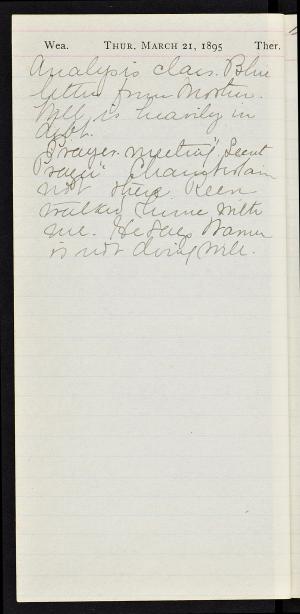 Wea. THUR. MARCH 21, 1895 Ther.
Analysis class. Blue
letter from Morton.
Will is heavily in
debt.
Prayer meeting "Secret
Chamberlain
not there. Keen
walked home with
me. He says Warner
is not doing well.